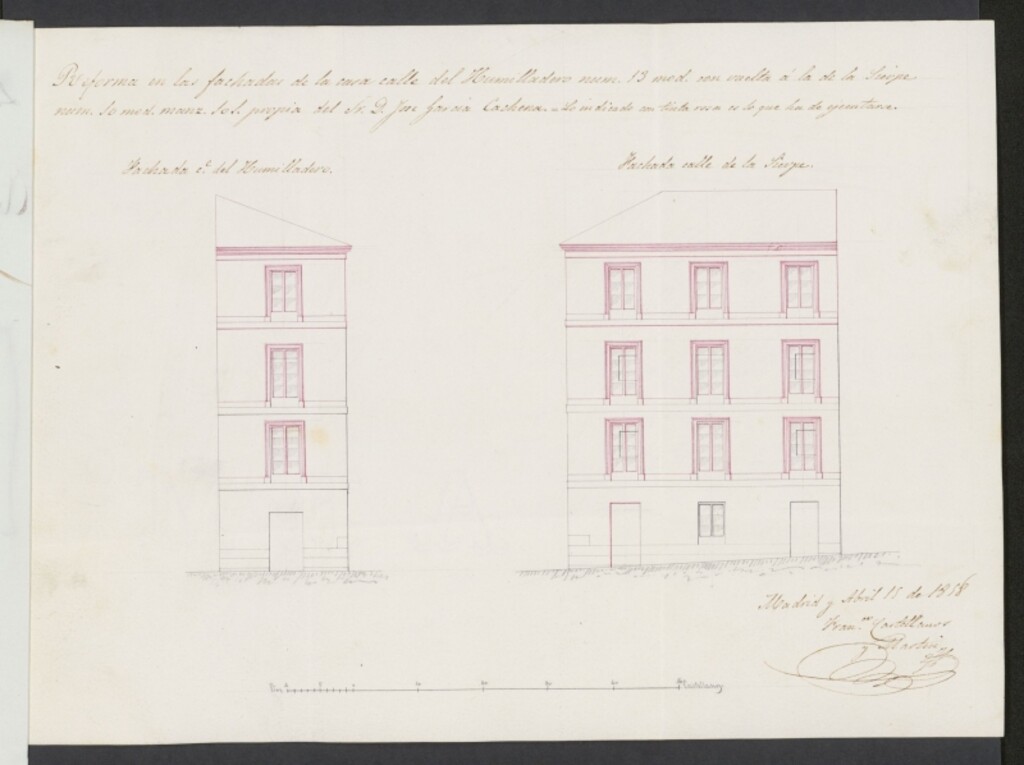 Reforma en las fachadas de la casa calle del Humilladero num. 13 mod. con vuelta á la de la Sierpe
num. 10 mod. manz. 101, propia del Sr. D. José García Cachena. - Lo indicado con tinta rosa es lo que ha de ejecutarse.
Fachada c.e del Humilladero.
Fachada calle de la Sierpe.
Madrid y Abril 15 de 1858
Fran.co Castellanos
Pies